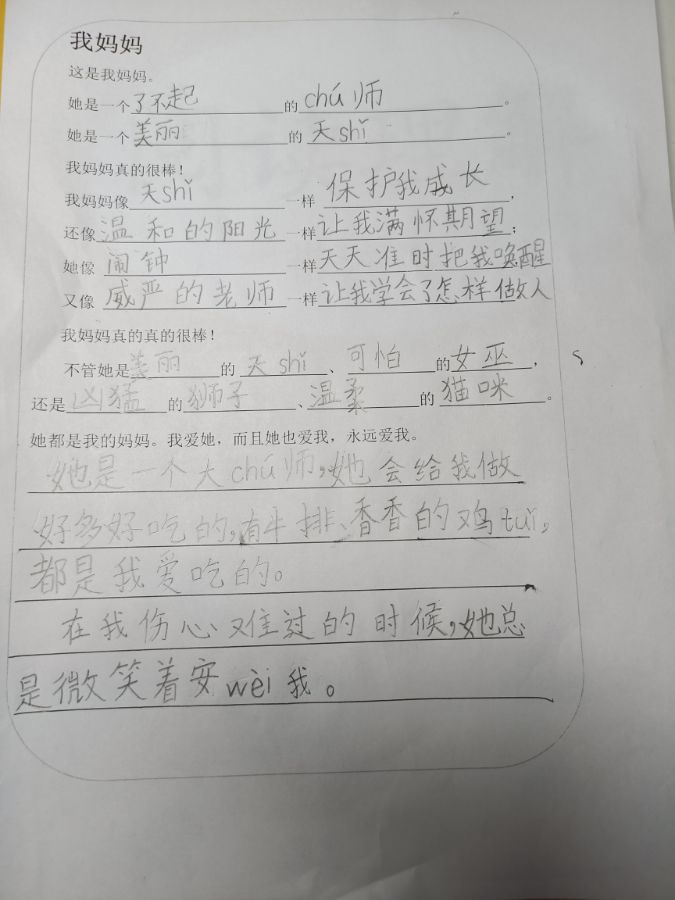 我妈妈
这是我妈妈。
她是一个了不起的chú师。
她是一个美丽的天shǐ。
我妈妈真的很棒！
我妈妈像天shǐ一样保护我成长，
还像温和的阳光一样让我满怀期望；
她像闹钟一样天天准时把我唤醒
又像威严的老师一样让我学会了怎样做人
我妈妈真的真的很棒！
不管她是美丽的天shǐ、可怕的女巫，
还是凶猛的狮子、温柔的猫咪。
她都是我的妈妈。我爱她，而且她也爱我，永远爱我。
她是一个大chú师，她会给我做
好多好吃的，有牛排、香香的鸡tuǐ，
都是我爱吃的。
在我伤心难过的时候，她总
是微笑着安wèi我。